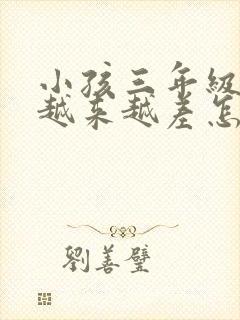 小孩三年級
越来越差怎
劉善璧